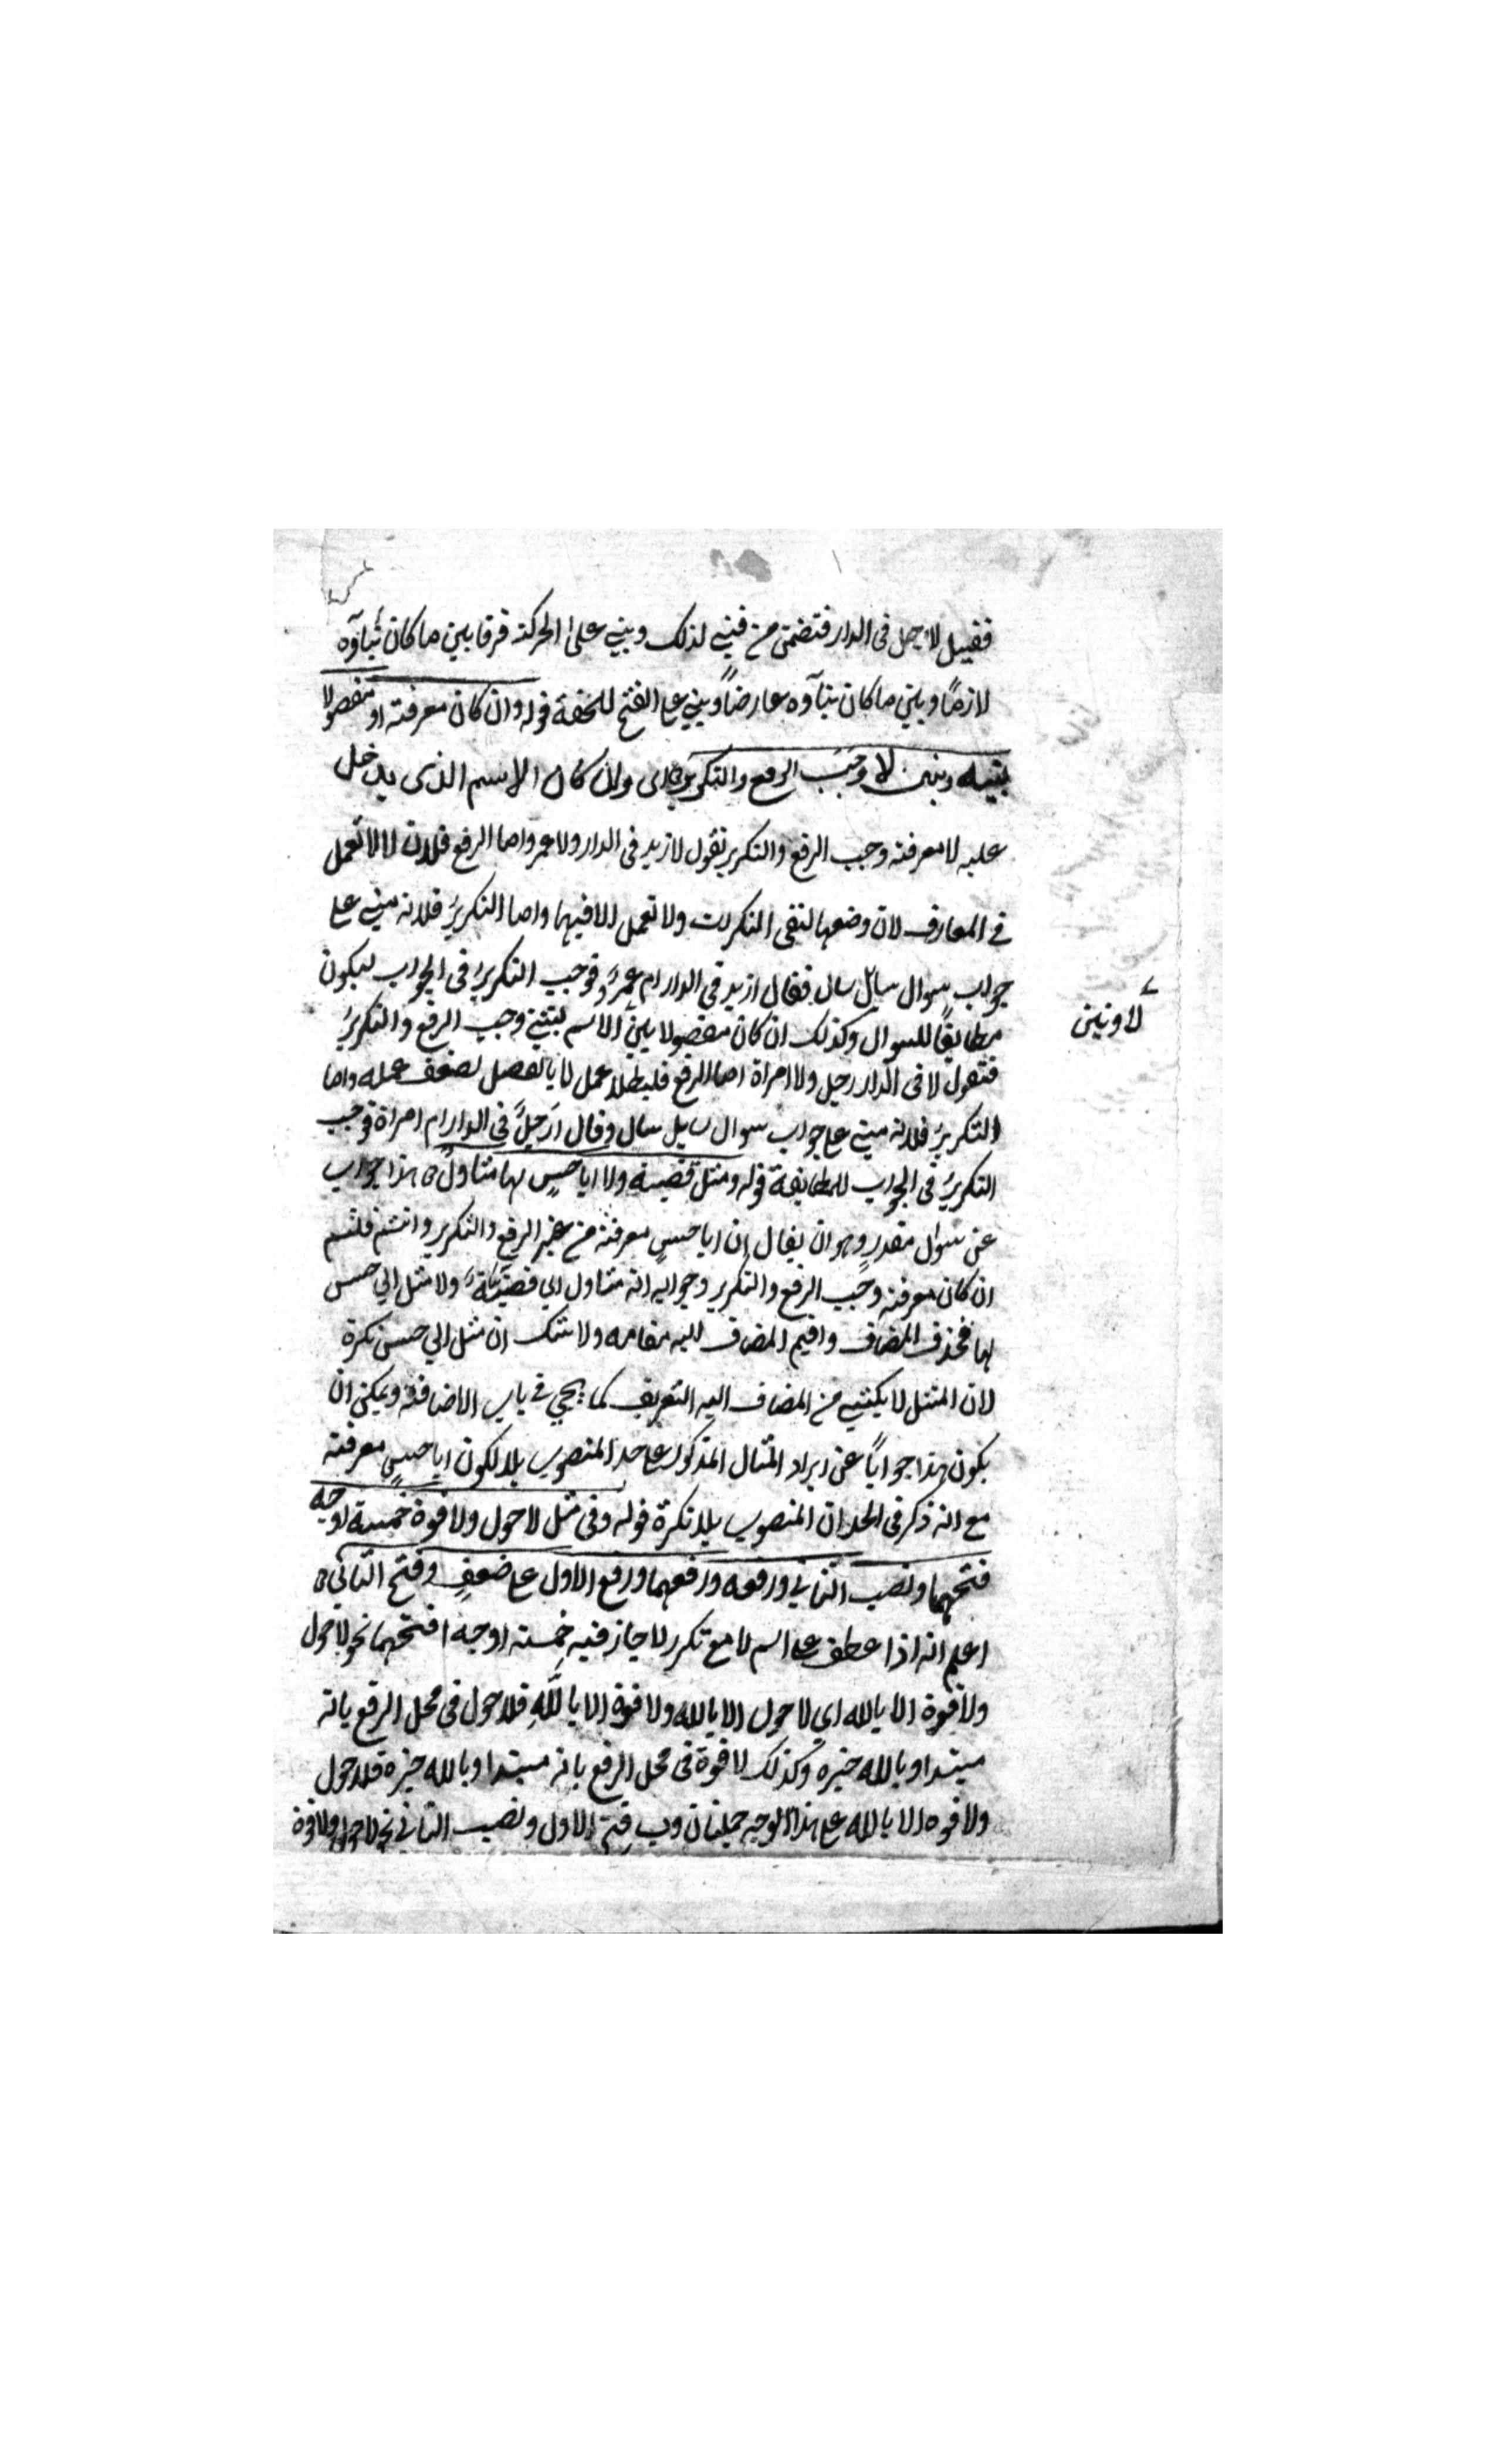 فقيل لا رجل فى الدار فتضمن من فبنى لذلك وبنى على الحركة فرقا بين ما كان بناؤه
لازمًا وبين ما كان بناؤه عارضاً وبنى على الفتح للخفة قوله وان كان معرفة او مفصولا
بينه وبين لا وجب الرفع والتكرير اى وان كان الاسم الذى يدخل
عليه لا معرفة وجب الرفع والتكرير نقول لا زيد فى الدار ولا عمر واما الرفع فلان لا لا تعمل
فى المعارف لان وضعها لنفى النكرات ولا تعمل الا فيها واما التكرير فلانه مبنى على
جواب سوال سايل سال فقال ازيد فى الدار ام عمرو فوجب التكرير فى الجواب ليكون
مطابقًا للسوال وكذلك ان كان مفصولا بين الاسم وجب الرفع والتكرير
لا وبين
فتقول لا فى الدار رجل ولا امراة اما الرفع فلبطلا عمل لا بالفصل لضعف عمله واما
التكرير فلانه مبنى على جواب سوال سايل سال وقال ارجل فى الدار ام امراة فوجب
التكرير فى الجواب للمطابقة قوله ومثل قضية ولا ابا حسن لها متاول هذا جواب
عن سوال مقدر وهو ان يقال ان ابا حسن معرفة من غير الرفع والتكرير وانتم قلتم
ان كان معرفة وجب الرفع والتكرير وجوابه انه متاول اى قضية ولا مثل ابى حسن
لها فحذف المضاف واقيم المضاف اليه مقامه ولا شك ان مثل ابى حسن نكرة
لان المثل لا يكتسى من المضاف اليه التعريف كما يجى فى باب الاضافة ويمكن ان
يكون هذا جواباً عن ايراد المثال المذكور على حد المنصوب بلا لكون ابا حسن معرفة
مع انه ذكر فى الحد ان المنصوب بلا نكرة قوله وفى مثل لا حول ولا قوة خمسة اوجه
فتحهما ونصب الثانى ورفعه ورفعهما ورفع الاول على ضعف وفتح الثانى
اعلم انه اذا عطف على اسم لا مع تكرر لا جاز فيه خمسة اوجه ا فتحهما نحو لا حول
ولا قوة الا بالله اى لا حول الا بالله ولا قوة الا بالله فلا حول فى محل الرفع بانه
مبتدا وبالله خبره وكذلك لا قوة فى محل الرفع بانه مبتدا وبالله خبره فلا حول
ولا قوه الا بالله على هذا الوجه جملتان وب فتح الاول ونصب الثانى نحو لا حول ولا قوة